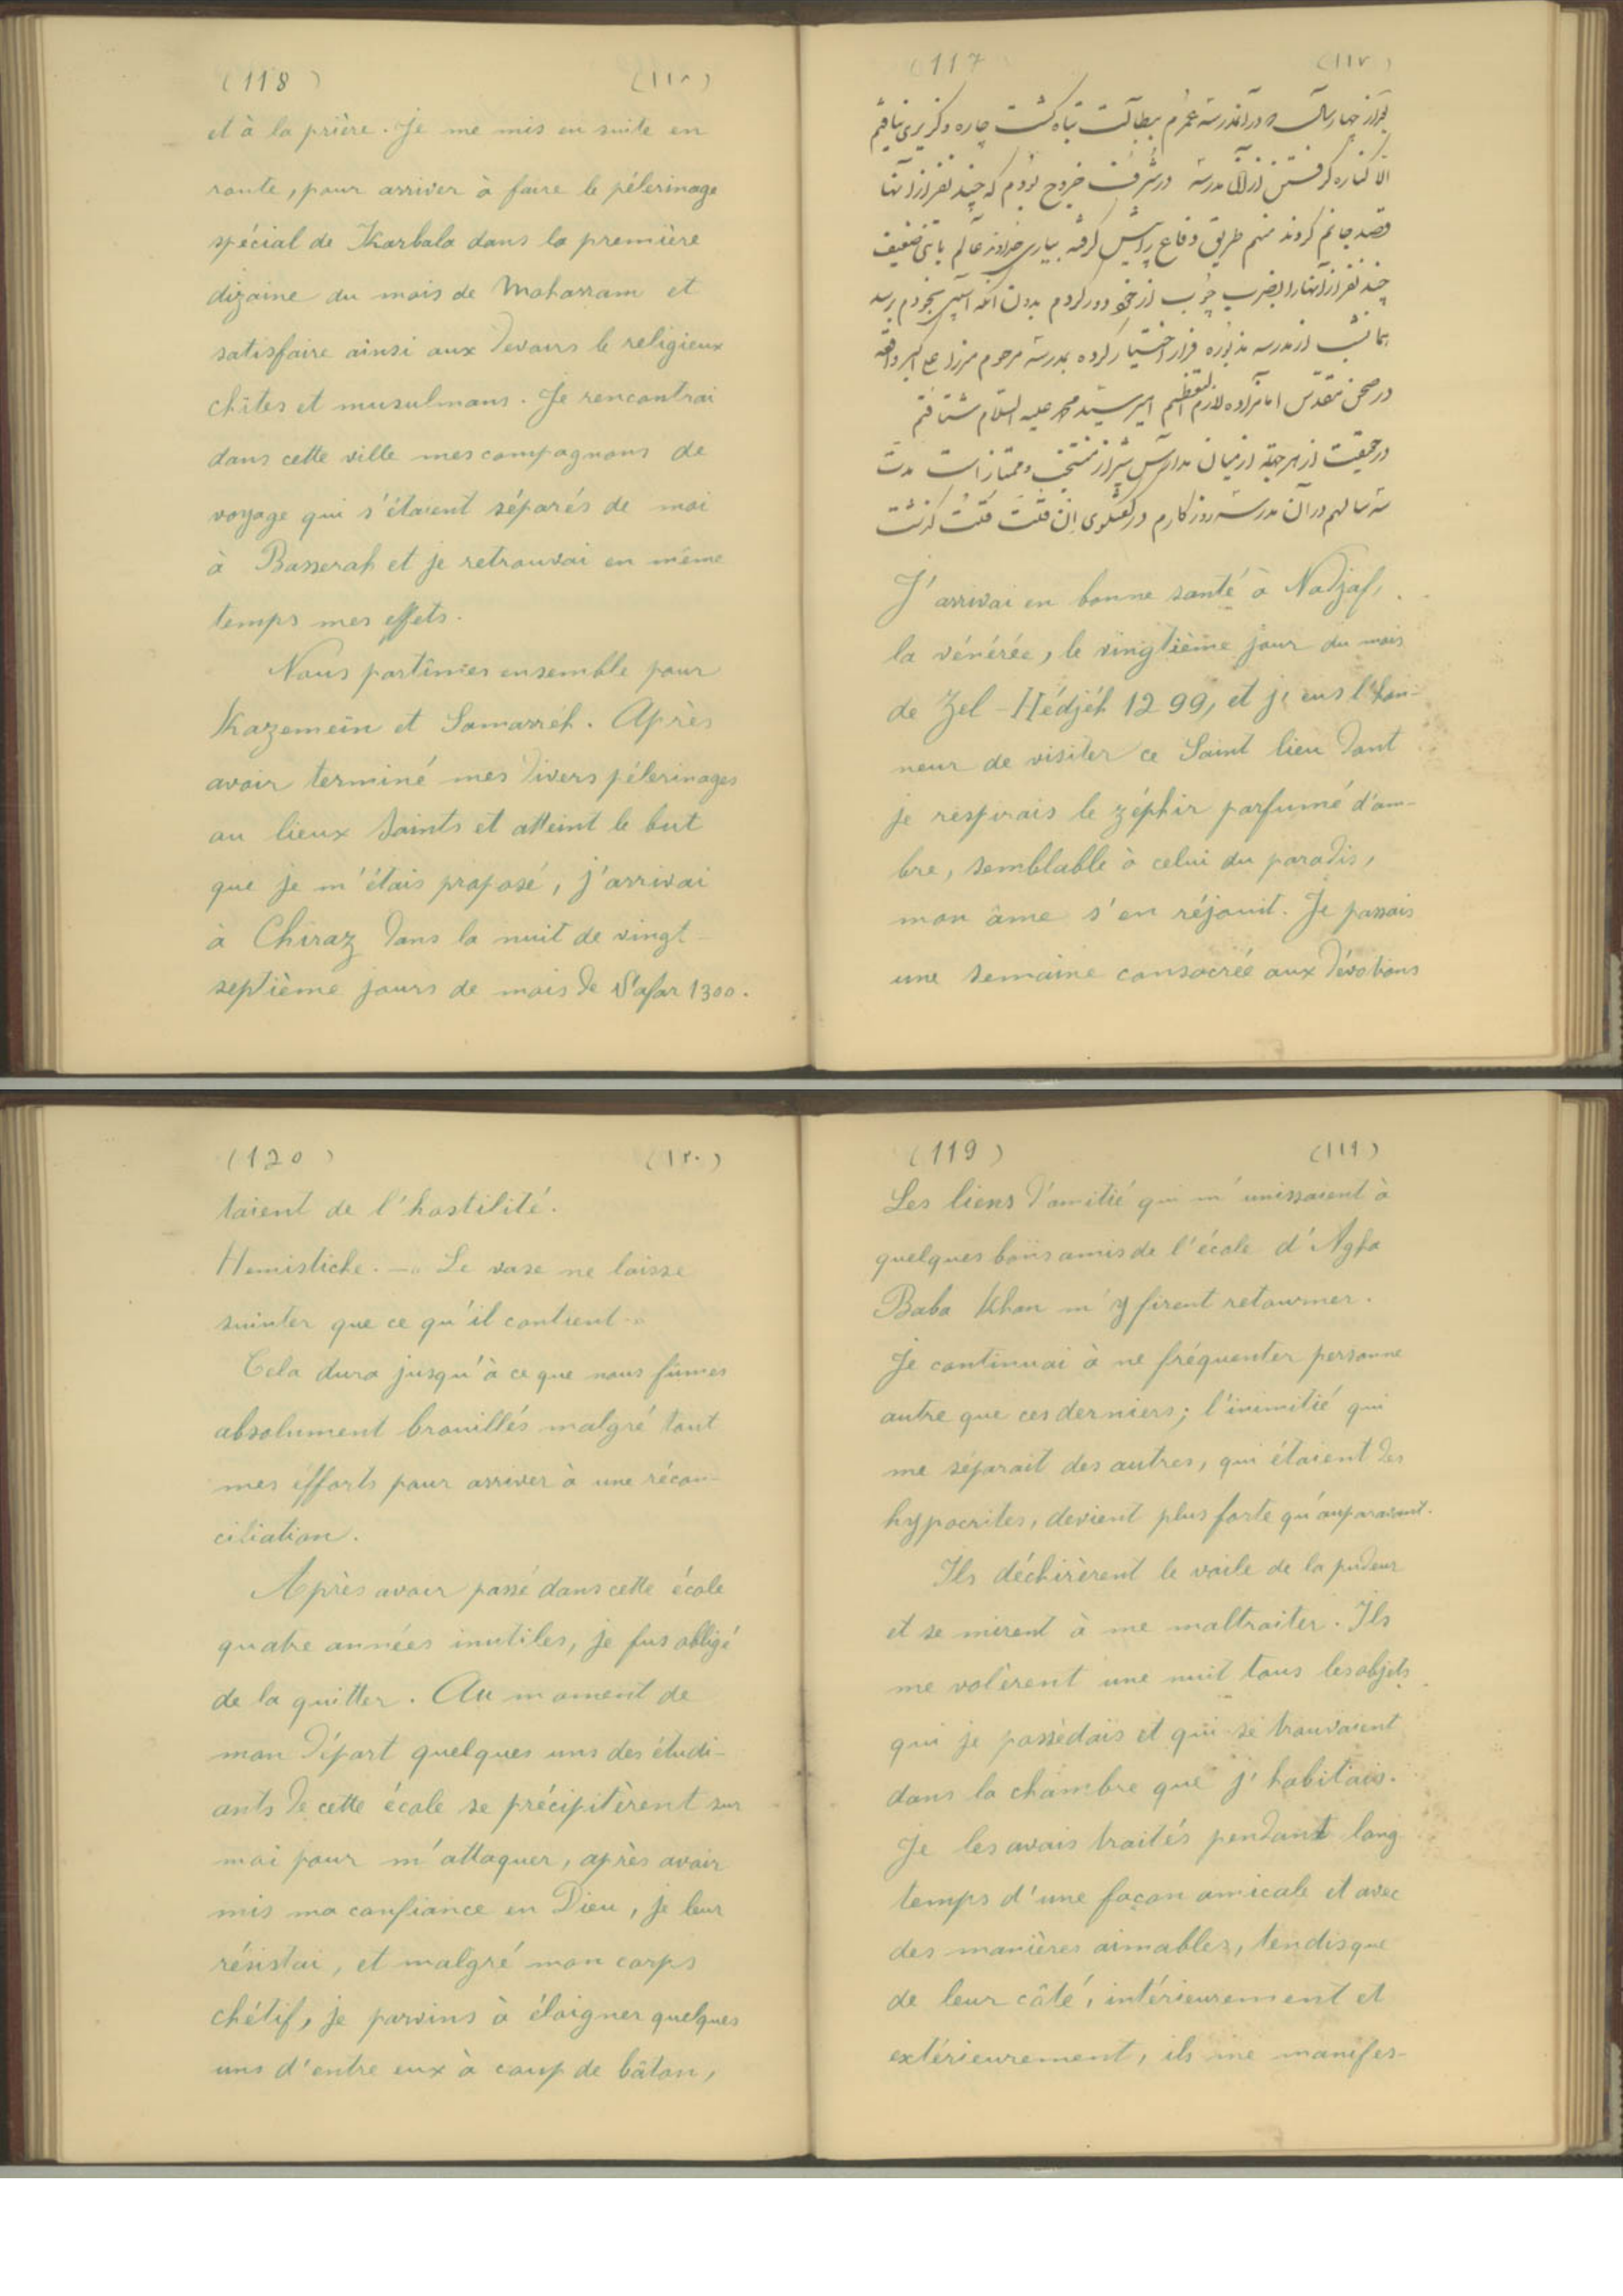 (117) (١١٧)
در حقیقت از هر جهة از میان مدارس شیراز منتخب و ممتاز است مدت
سه سالهم در آن مدرسه روزگارم در گفتگوی ان قلت قلت گذشت
J'arrivai en bonne santé à Nadjaf,
la vénérée, le vingtième jour du mois
de Zel-Hédjéh 1299, et j'eus l'hon-
neur de visiter ce Saint lieu dont
je respirais le zéphir parfumé d'am-
bre, semblable à celui du paradis,
mon âme s'en réjouit. Je passais
une semaine consacrée aux dévotions
(118) (١١٨)
et à la prière. Je me mis en suite en
route, pour arriver à faire le pélerinage
spécial de Karbala dans la première
dizaine du mois de Moharram et
satisfaire ainsi aux devoirs le religieux
chïtes et musulmans. Je rencontrai
dans cette ville mes compagnons de
voyage qui s'étaient séparés de moi
à Basserah et je retrouvai en même
temps mes effets.
Nous partîmes ensemble pour
Kazemeïn et Samarréh. Après
avoir terminé mes divers pélerinages
au lieux Saints et atteint le but
que je m'étais proposé, j'arrivai
à Chiraz dans la nuit de vingt-
septième jours de mois de Safar 1300.
(119) (١١٩)
Les liens d'amitié qui m'unissaient à
quelques bons amis de l'école d'Agha
Baba Khan m'y firent retourner.
Je continuai à ne fréquenter personne
autre que ces derniers; l'inimitié qui
me séparait des autres, qui étaient des
hypocrites, devient plus forte qu'auparavant.
Ils déchirèrent le voile de la pudeur
et se mirent à me maltraiter. Ils
me volèrent une nuit tous les objets
qui je possédais et qui se trouvaient
dans la chambre que j'habitais.
Je les avais traités pendant long
temps d'une façon amicale et avec
des manières aimables, tendisque
de leur côté, intérieurement et
extérieurement, ils me manifes-
(120) (١٢٠)
taient de l'hostilité.
Hemistiche. — Le vase ne laisse
suinter que ce qu'il contient.
Cela dura jusqu'à ce que nous fûmes
absolument brouillés malgré tout
mes éfforts pour arriver à une récon-
ciliation.
Après avoir passé dans cette école
quatre années inutiles, je fus obligé
de la quitter. Au moment de
mon départ quelques uns des étudi-
ants de cette école se précipitèrent sur
moi pour m'attaquer, après avoir
mis ma confiance en Dieu, je leur
résistai, et malgré mon corps
chétif, je parvins à éloigner quelques
uns d'entre eux à coup de bâton,